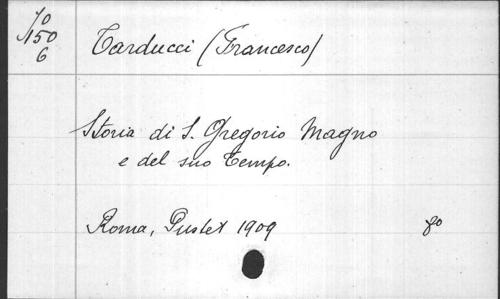 70
150
6
Tarducci (Francesco)
Storia di S. Gregorio Magno
e del suo tempo.
Roma, Pustet 1909
8º